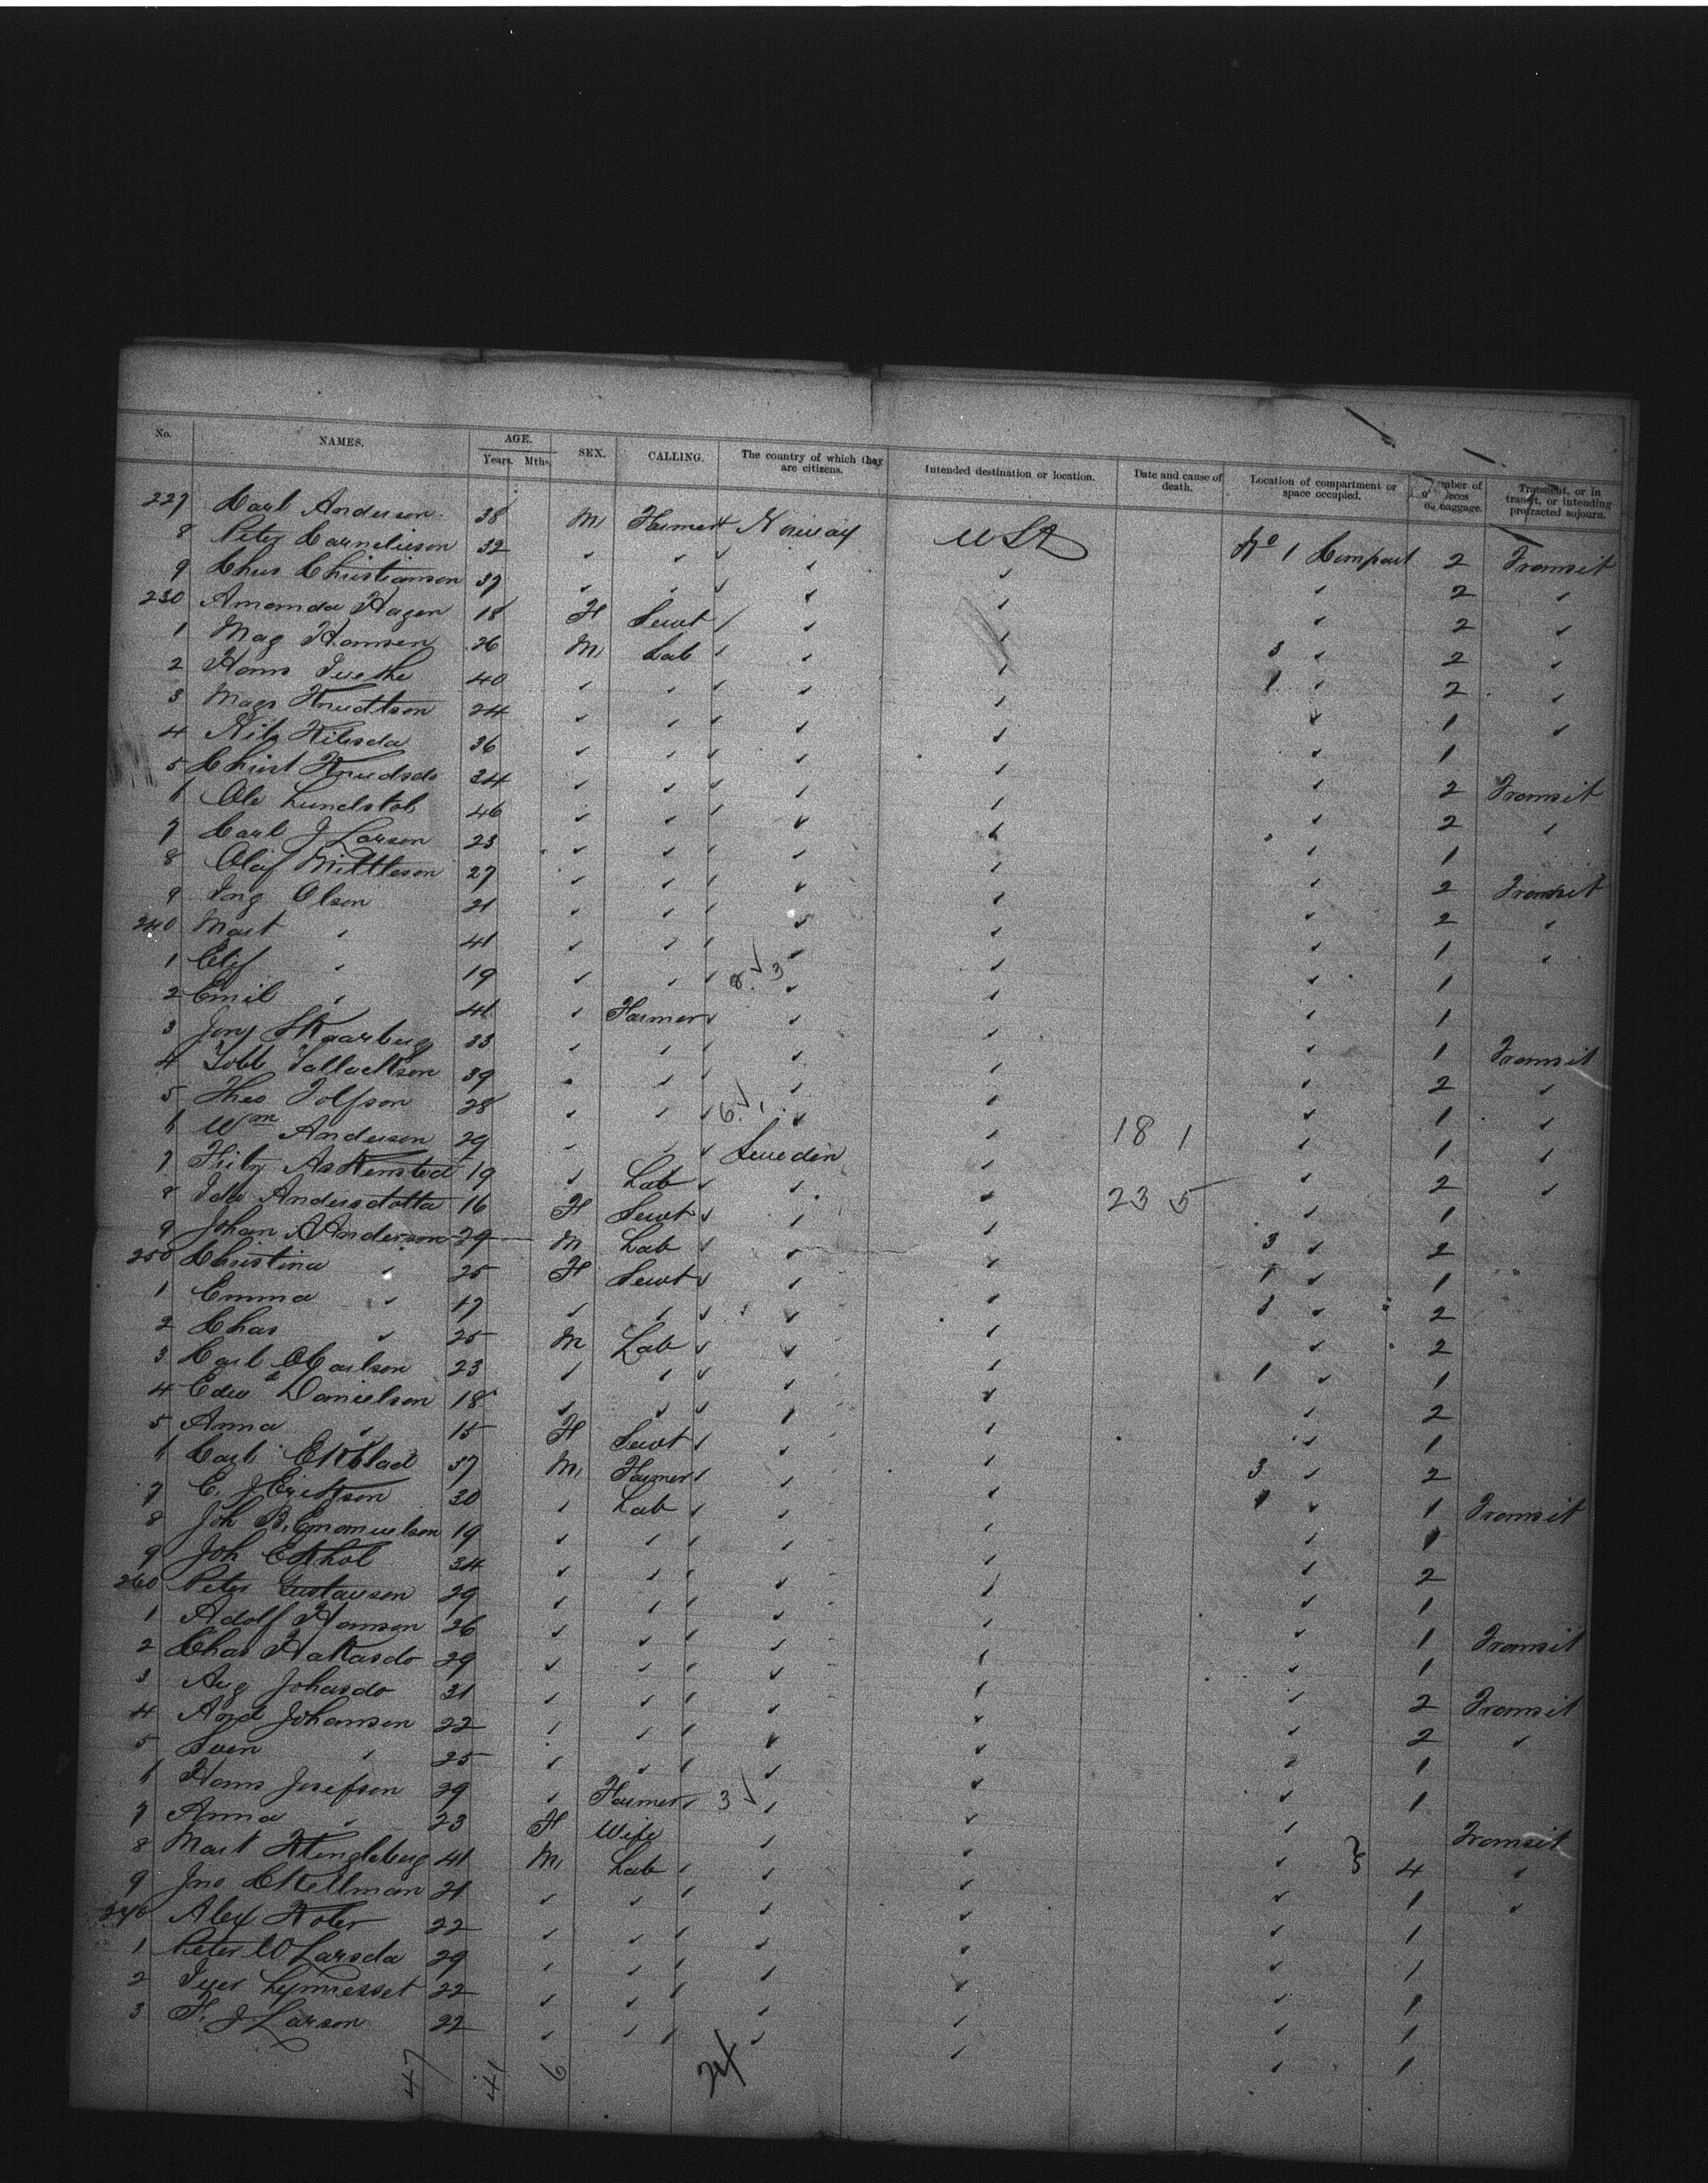 No. NAMES. AGE. Years. Mths. SEX. CALLING. The country of which they are citizens. Intended destination or location. Date and cause of death. Location of compartment or space occupied. Number of pieces of baggage. Transient, or in transit, or intending protracted sojourn.
227 Carl Anderson 38 M Farmer Norway USA No 1 Compart 2 Transit
8 Peter Cornelieson 32 " " " " " 2 "
9 Chris Christianson 37 " " " " " 2 "
230 Amanda Hagen 18 F Servt " " 3 " 2 "
1 Mag Hansen 26 M Lab " " 1 " 2 "
2 Hans 40 " " " " " 1 "
3 Mags Knudtson 24 " " " " " 1
4 Nils Nilsda 36 " " " " " 2 Transit
5 Christ Knudsdo 34 " " " " " 2 "
6 Ole 46 " " " " " 1
7 Carl J Larson 23 " " " " " 2 Transit
8 Olaf Mittleson 27 " " " " " 2 "
9 Ing Olson 21 " " " " " 1 "
240 Mart " 41 " " " " " 1
1 " 19 " " 8 √ 3 " " " 1
2 Emil " 41 " Farmer " " " 1 Transit
3 Skaarberg 33 " " " " " 2 "
4 Tallackson 39 " " " " " 1 "
5 Theo Tolfson 28 " " 6 √ 1 " " " 1 "
6 Wm Anderson 29 " " Sweden " 18 1 " 2 "
7 19 " Lab " " " 1
8 Ida Andersdotta 16 F Servt " " 23 5 3 " 2
9 Johan A Anderson 29 M Lab " " 1 " 1
250 Christina " 25 F Servt " " 3 " 2
1 Emma " 17 " " " " " 2
2 Chas " 25 M Lab " " 1 " 1
3 Carl Carlson 23 " " " " " 2
4 Edwd Danielson 18 " " " " " 1
5 Anna " 15 F Servt " " 3 " 2
6 Carl Ekblad 37 M Farmer " " 1 " 1 Transit
7 E. J Erickson 30 " Lab " " " 1
8 Joh B. Emanuelson 19 " " " " " 2
9 Joh Ekhol 34 " " " " " 1
260 Peter Gustavson 29 " " " " " 1 Transit
1 Adolf Hanson 26 " " " " " 1
2 Chas Hakasdo 29 " " " " " 2 Transit
3 Aug Johasdo 31 " " " " " 2 "
4 Johanson 22 " " " " " 1
5 Sven " 25 " " " " " 1
6 Hans Josefson 29 " Farmer 3 √ " " " Transit
7 Anna " 23 F Wife " " " } 4 "
8 Mart Klengleberg 41 M Lab " " " 1 "
9 Jno C Kellman 21 " " " " " 1
270 Alex Koler 22 " " " " " 1
1 Peter W Larsda 29 " " " " " 1
2 22 " " " " " 1
3 F. J Larson 22 " " " " " 1
47 41 6 24